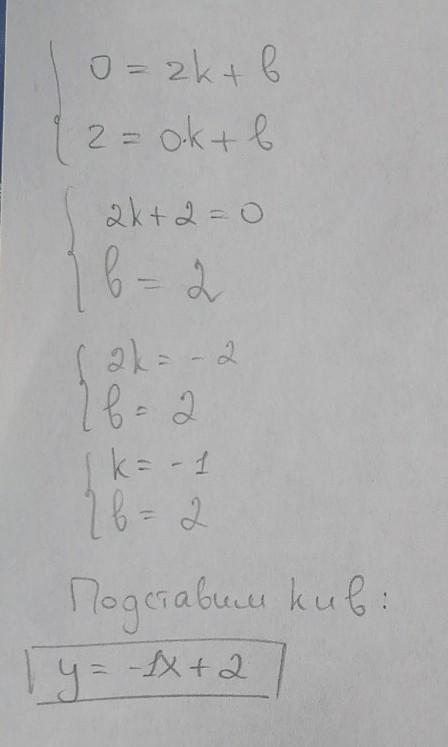 0 = 2k + в
2 = 0·k + в
2k + 2 = 0
в = 2
2k = - 2
в = 2
k = - 1
в = 2
Подставим k и в:
y = -1x + 2